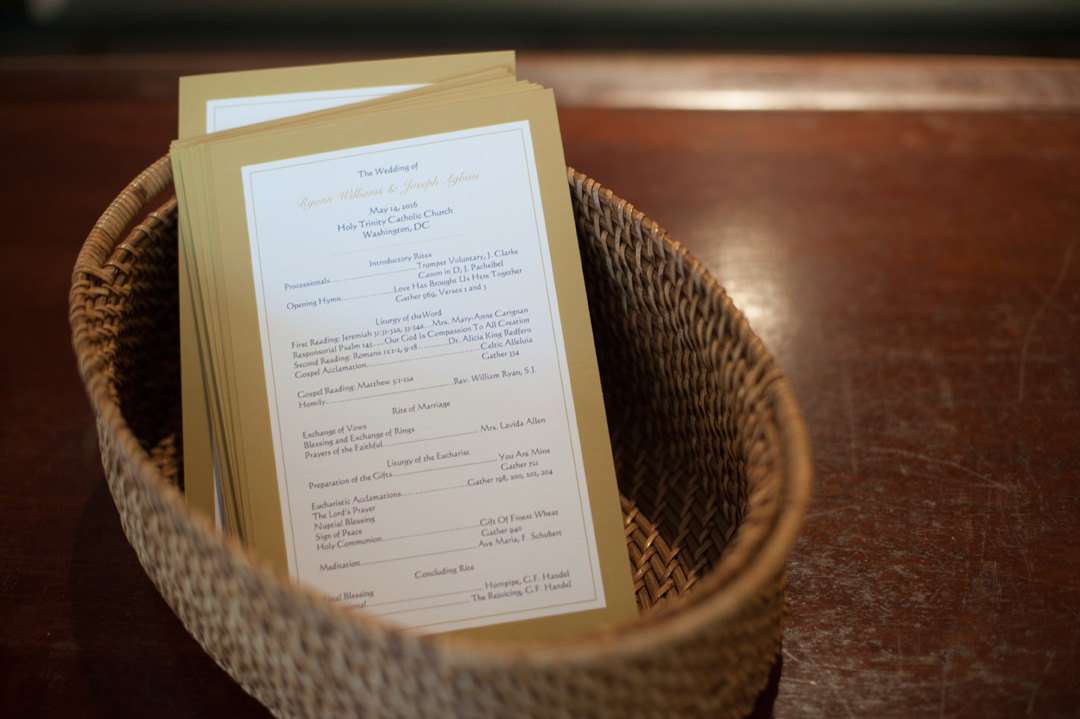 The Wedding of
Ryann Williams & Joseph Agbasi
May 14, 2016
Holy Trinity Catholic Church
Washington, DC
Introductory Rites
Processionals..............................Trumpet Voluntary, J. Clarke
Canon in D, J. Pachelbel
Opening Hymn..................Love Has Brought Us Here Together
Gather 969, Verses 1 and 3
Liturgy of theWord
First Reading: Jeremiah 31:31-32a, 33-34a...Mrs. Mary-Anne Carignan
Responsorial Psalm 145.....Our God Is Compassion To All Creation
Second Reading: Romans 12:1-2, 9-18............Dr. Alicia King Redfern
Gospel Acclamation........................................Celtic Alleluia
Gather 334
Gospel Reading: Matthew 5:1-12a
Homily............................................Rev. William Ryan, S.J.
Rite of Marriage
Exchange of Vows
Blessing and Exchange of Rings
Prayers of the Faithful................................Mrs. Lavida Allen
Liturgy of the Eucharist
Preparation of the Gifts....................................You Are Mine
Gather 721
Eucharistic Acclamations......................Gather 198, 200, 202, 204
The Lord's Prayer
Nuptial Blessing
Sign of Peace
Holy Communion.................................Gift Of Finest Wheat
Gather 940
Meditation.......................................Ave Maria, F. Schubert
Concluding Rite
Final Blessing
....................................Hornpipe, G.F. Handel
The Rejoicing, G.F. Handel